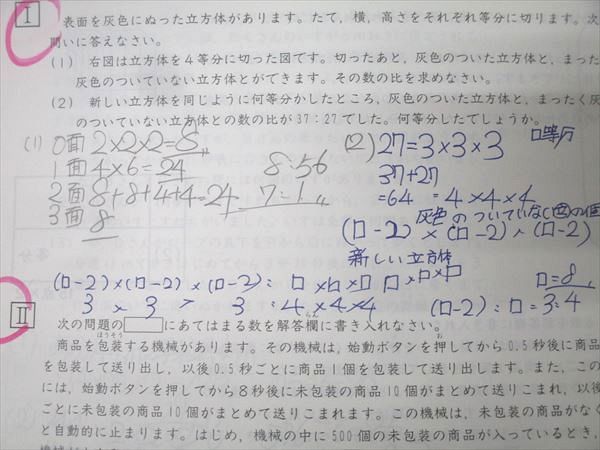 I 表面を灰色にぬった立方体があります。たて，横，高さをそれぞれ等分に切ります。次
問いに答えなさい。
(1) 右図は立方体を4等分に切った図です。切ったあと，灰色のついた立方体と，まった
灰色のついていない立方体とができます。その数の比を求めなさい。
(2) 新しい立方体を同じように何等分かしたところ，灰色のついた立方体と，まったく灰
のついていない立方体との数の比が37：27でした。何等分したでしょうか。
(1) 0面 2×2×2=8
1面 4×6=24
2面 8+8+4+4=24
3面 8
8:56
7:1
(2) 27=3×3×3
37+27
=64 =4×4×4
□等分
灰色のついていない
(□-2)×(□-2)×(□-2)
新しい立方体
□×□×□
(□-2)×(□-2)×(□-2):□×□×□
3×3×3:4×4×4
□=8
(□-2):□=3:4
II 次の問題の□にあてはまる数を解答欄に書き入れなさい。
ほうそう
商品を包装する機械があります。その機械は，始動ボタンを押してから0.5秒後に商品
を包装して送り出し，以後0.5秒ごとに商品1個を包装して送り出します。また，この
には，始動ボタンを押してから8秒後に未包装の商品10個がまとめて送りこまれ，以後
ごとに未包装の商品10個がまとめて送りこまれます。この機械は，未包装の商品がなく
と自動的に止まります。はじめ，機械の中に500個の未包装の商品が入っているとき，